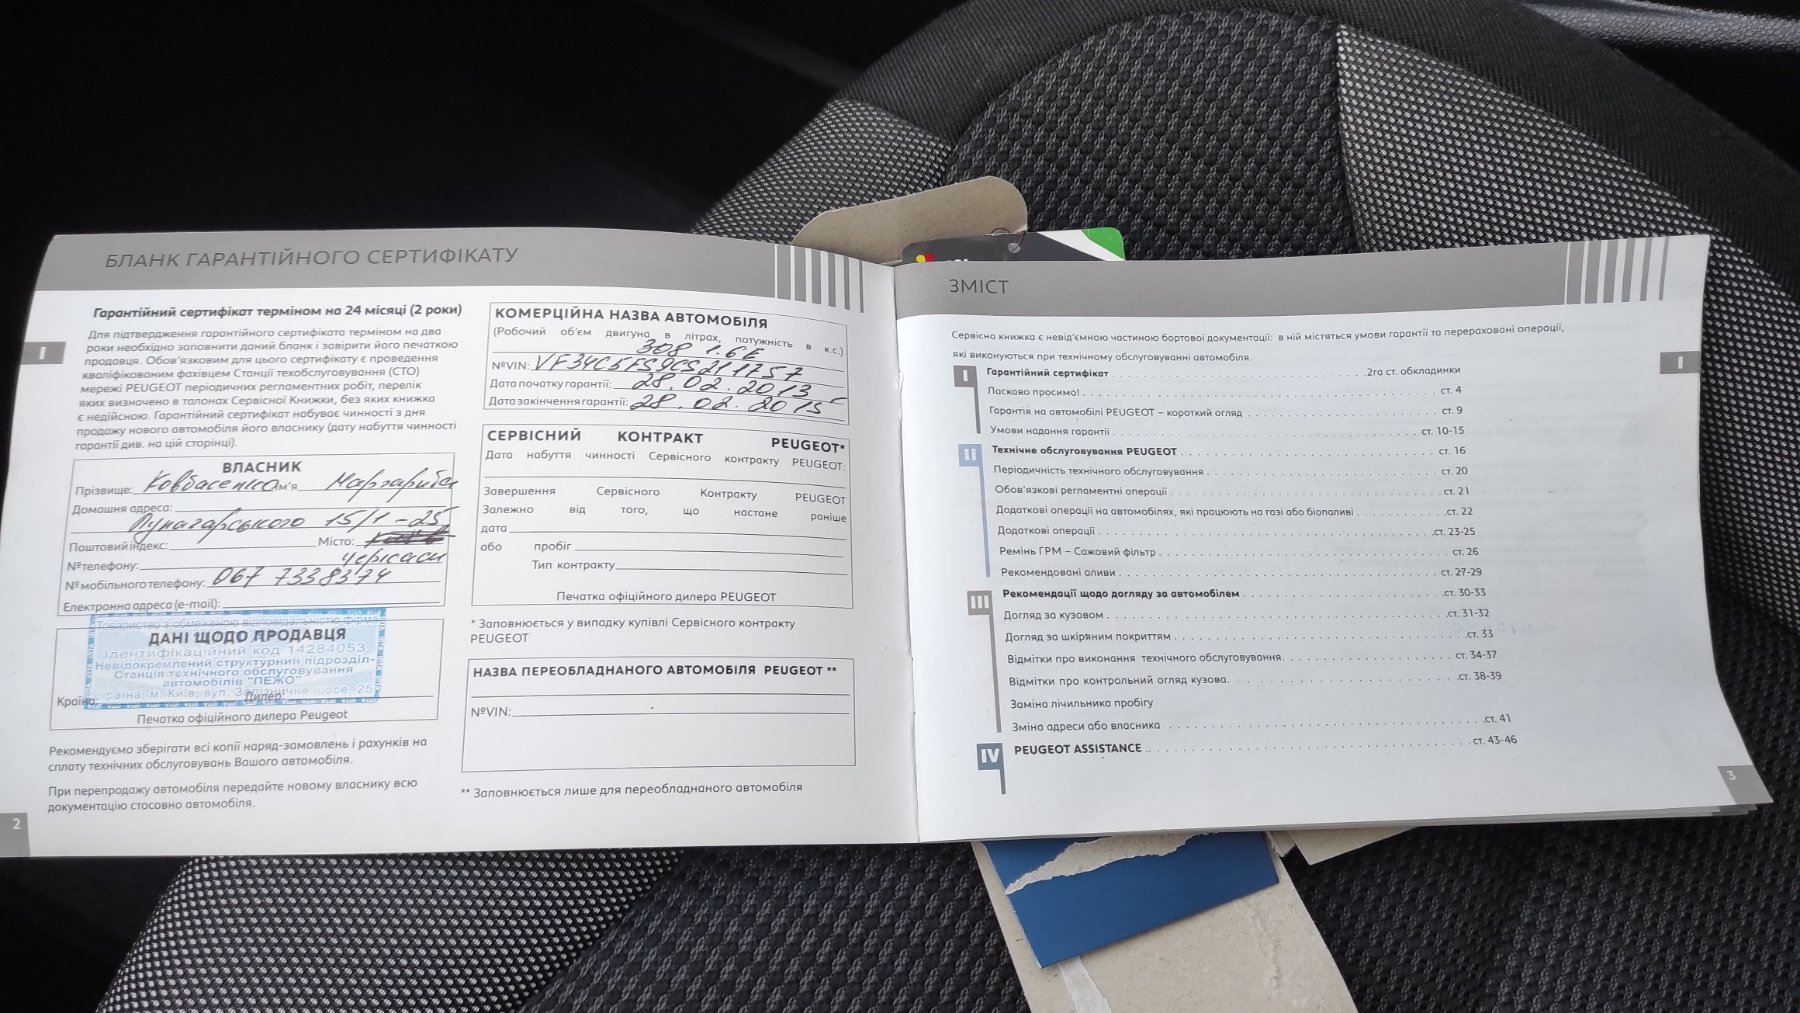 БЛАНК ГАРАНТІЙНОГО СЕРТИФІКАТУ
I
Гарантійний сертифікат терміном на 24 місяці (2 роки)
Для підтвердження гарантійного сертифіката терміном на два
роки необхідно заповнити даний бланк і завірити його печаткою
продавця. Обов'язковим для цього сертифікату є проведення
кваліфікованим фахівцем Станції техобслуговування (СТО)
мережі PEUGEOT періодичних регламентних робіт, перелік
яких визначено в талонах Сервісної Книжки, без яких книжка
є недійсною. Гарантійний сертифікат набуває чинності з дня
продажу нового автомобіля його власнику (дату набуття чинності
гарантії див. на цій сторінці).
ВЛАСНИК
Прізвище: Ковбасенко Ім'я Маргарита
Домашня адреса:
Луначарського 15/1-25
Поштовий індекс: Місто:
Черкаси
№ телефону:
№ мобільного телефону: 067 7338374
Електронна адреса (e-mail):
Товариство з обмеженою відповідальністю фірма
ДАНІ ЩОДО ПРОДАВЦЯ
Ідентифікаційний код 14284053
Невідокремлений структурний підрозділ-
Станція технічного обслуговування
автомобілів "ПЕЖО"
Україна, м. Київ, вул. Залізничне шосе, 25
Країна: Дилер:
Печатка офіційного дилера Peugeot
Рекомендуємо зберігати всі копії наряд-замовлень і рахунків на
сплату технічних обслуговувань Вашого автомобіля.
При перепродажу автомобіля передайте новому власнику всю
документацію стосовно автомобіля.
2
КОМЕРЦІЙНА НАЗВА АВТОМОБІЛЯ
(Робочий об'єм двигуна в літрах, потужність в к.с.)
308 1.6E
№VIN: VF34C5FS9CS211757
Дата початку гарантії: 28.02.2013
Дата закінчення гарантії: 28.02.2015
СЕРВІСНИЙ КОНТРАКТ PEUGEOT*
Дата набуття чинності Сервісного контракту PEUGEOT:
Завершення Сервісного Контракту PEUGEOT
Залежно від того, що настане раніше
дата
або пробіг
Тип контракту
Печатка офіційного дилера PEUGEOT
* Заповнюється у випадку купівлі Сервісного контракту
PEUGEOT
НАЗВА ПЕРЕОБЛАДНАНОГО АВТОМОБІЛЯ PEUGEOT **
№VIN:
** Заповнюється лише для переобладнаного автомобіля
ЗМІСТ
I
Сервісна книжка є невід'ємною частиною бортової документації: в ній містяться умови гарантії та перераховані операції,
які виконуються при технічному обслуговуванні автомобіля.
I Гарантійний сертифікат 2га ст. обкладинки
Ласкаво просимо! ст. 4
Гарантія на автомобілі PEUGEOT – короткий огляд ст. 9
Умови надання гарантії ст. 10-15
II Технічне обслуговування PEUGEOT ст. 16
Періодичність технічного обслуговування ст. 20
Обов'язкові регламентні операції ст. 21
Додаткові операції на автомобілях, які працюють на газі або біопаливі ст. 22
Додаткові операції ст. 23-25
Ремінь ГРМ – Сажовий фільтр ст. 26
Рекомендовані оливи ст. 27-29
III Рекомендації щодо догляду за автомобілем ст. 30-33
Догляд за кузовом ст. 31-32
Догляд за шкіряним покриттям ст. 33
Відмітки про виконання технічного обслуговування ст. 34-37
Відмітки про контрольний огляд кузова ст. 38-39
Заміна лічильника пробігу
Зміна адреси або власника ст. 41
IV PEUGEOT ASSISTANCE ст. 43-46
3